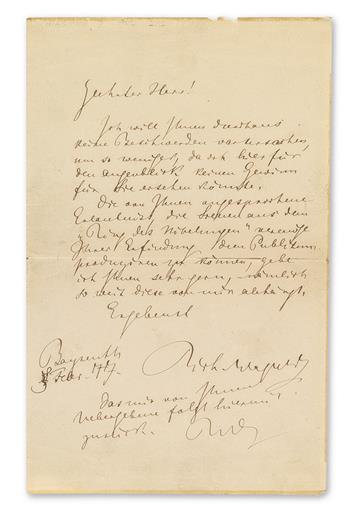 Geehrter Herr!
Ich will Ihnen durchaus
keine Beschwerden verursachen,
um so weniger, da ich hier für
den Augenblick keinen Gewinn
für Sie ersehen könnte.
Die von Ihnen angesprochene
Erlaubniss, die Scenen aus dem
„Ring des Nibelungen" vermöge
Ihrer Erfindung dem Publikum
produziren zu können, gebe
ich Ihnen sehr gern, nämlich
so weit diese von mir abhängt.
Ergebenst
Bayreuth
Febr. 77.
Rich. Wagner
Das mir von Ihnen
Uebergebene folgt hiermit
zurück.